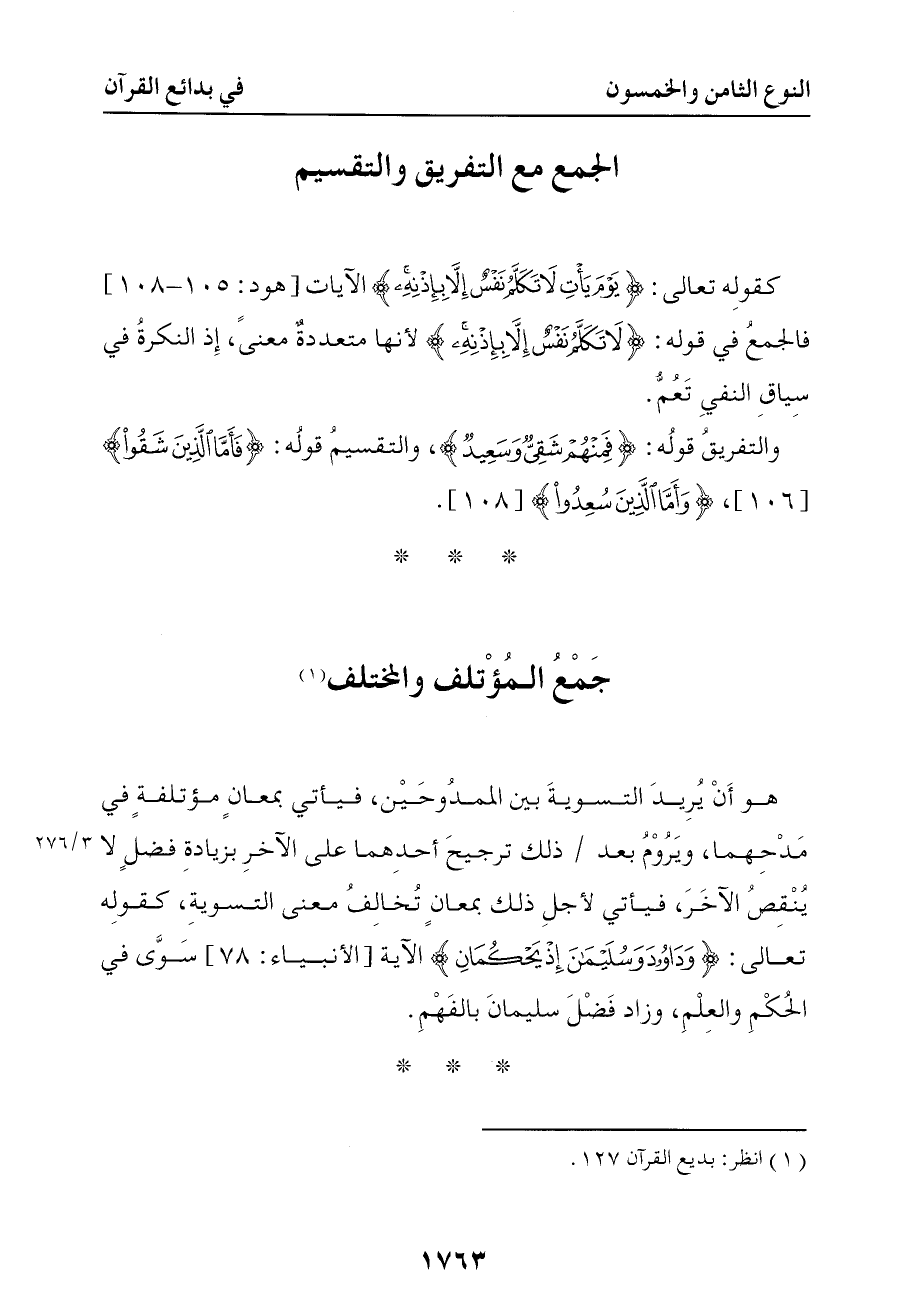 النوع الثامن والخمسون في بدائع القرآن
الجمع مع التفريق والتقسيم
كقوله تعالى: ﴿يَوْمَ يَأْتِ لَا تَكَلَّمُ نَفْسٌ إِلَّا بِإِذْنِهِۦ﴾ الآيات [هود: ١٠٥-١٠٨]
فالجمعُ في قوله: ﴿لَا تَكَلَّمُ نَفْسٌ إِلَّا بِإِذْنِهِۦ﴾ لأنها متعددةٌ معنىً، إذ النكرةُ في
سياقِ النفيِ تَعُمُّ.
والتفريقُ قولُه: ﴿فَمِنْهُمْ شَقِيٌّ وَسَعِيدٌ﴾، والتقسيمُ قولُه: ﴿فَأَمَّا ٱلَّذِينَ شَقُوا۟﴾
[١٠٦]، ﴿وَأَمَّا ٱلَّذِينَ سُعِدُوا۟﴾ [١٠٨].
* * *
جَمْعُ الـمُؤْتلف والمختلف(١)
هـو أَنْ يُرِيـدَ التـسويـةَ بين الممـدُوحَيْن، فـيـأتي بمعـانٍ مـؤتلفـةٍ في
مَدْحِـهـما، ويَرُوْمُ بعـد / ذلك ترجيحَ أحـدهـما على الآخـرِ بزيـادةِ فـضـلٍ لا ٢٧٦/٣
يُنْقِصُ الآخَـرَ، فـيـأتي لأجـلِ ذلك بمعـانٍ تُـخـالفُ مـعنى التـسويـةِ، كـقـولِه
تعـالى: ﴿وَدَاوُۥدَ وَسُلَيْمَٰنَ إِذْ يَحْكُمَانِ﴾ الآيـة [الأنـبـيـاء: ٧٨] سَـوَّى في
الحُكْمِ والعِلْمِ، وزاد فَضْلَ سليمانَ بالفَهْمِ.
* * *
(١) انظر: بديع القرآن ١٢٧.
١٧٦٣